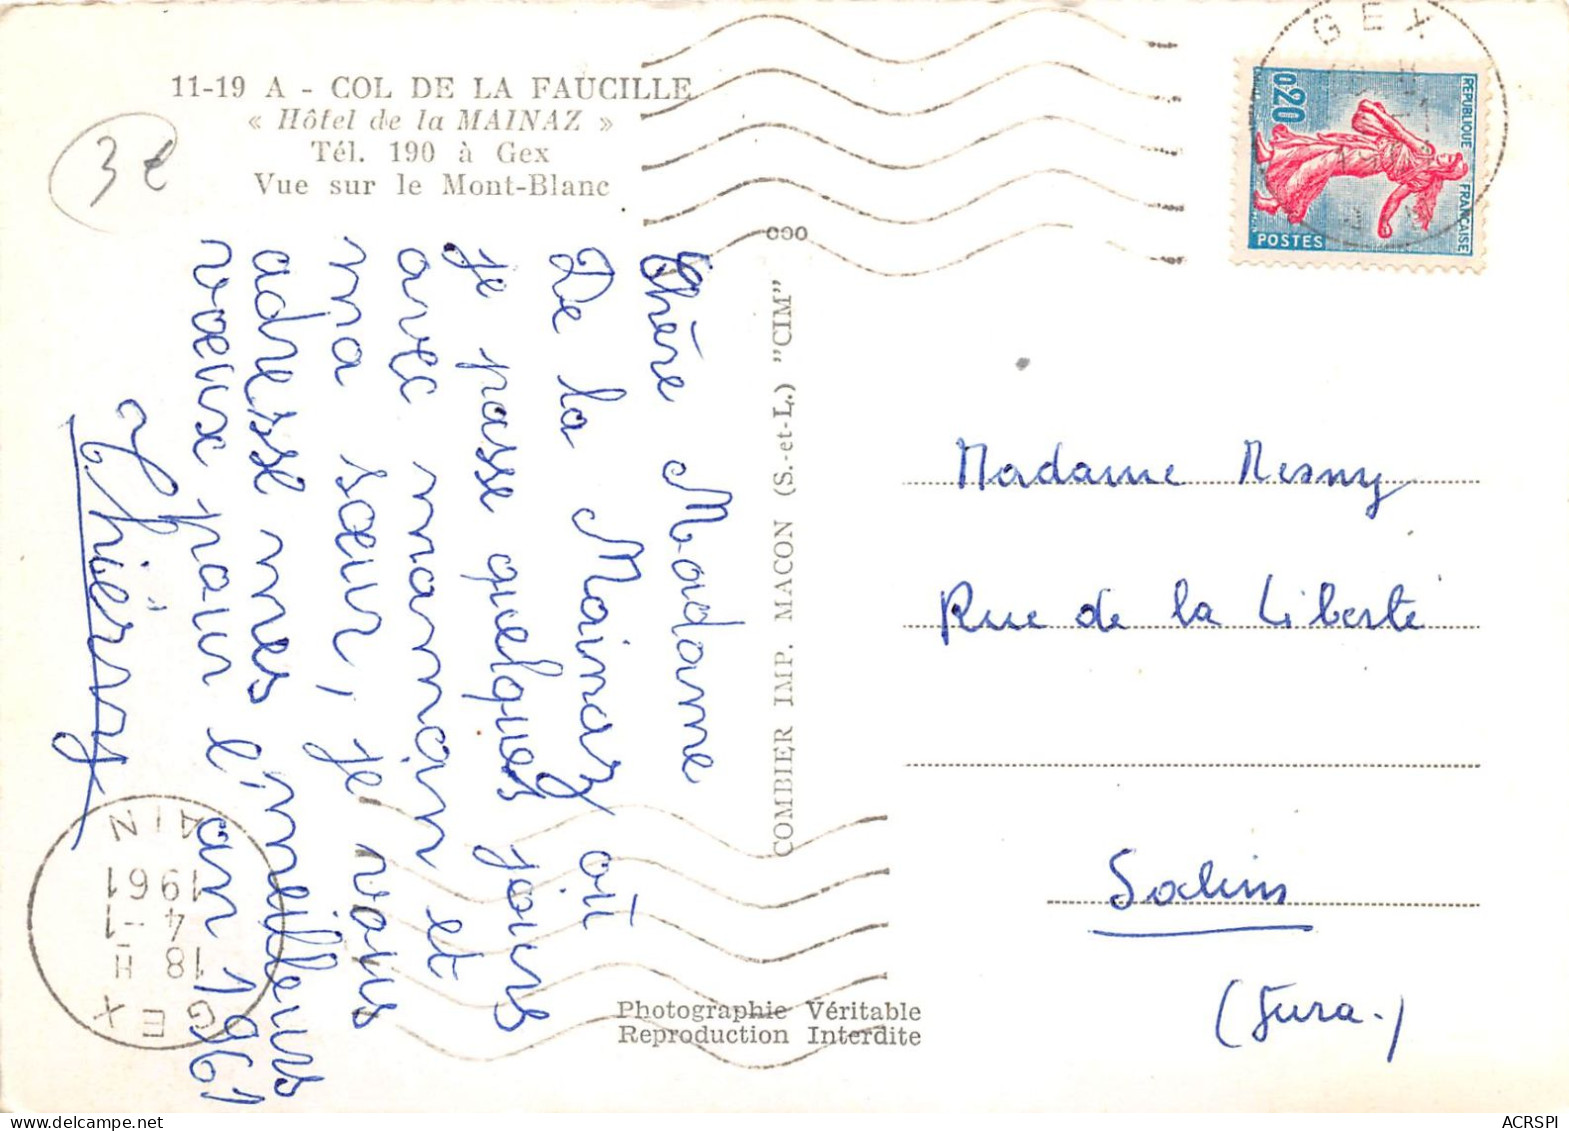 11-19 A - COL DE LA FAUCILLE
« Hôtel de la MAINAZ »
Tél. 190 à Gex
Vue sur le Mont-Blanc
3 €
Chère Madame
De la Mainaz où
je passe quelques jours
avec maman et
ma sœur, je vous
adresse mes meilleurs
vœux pour l'an 1961
Thierry
COMBIER IMP. MACON (S.-et-L.) "CIM"
Photographie Véritable
Reproduction Interdite
GEX
18 H
4-1
1961
AIN
GEX
0,20
REPUBLIQUE FRANÇAISE
POSTES
Madame Mesny
Rue de la Liberté
Salins
(Jura.)
ACRSPI